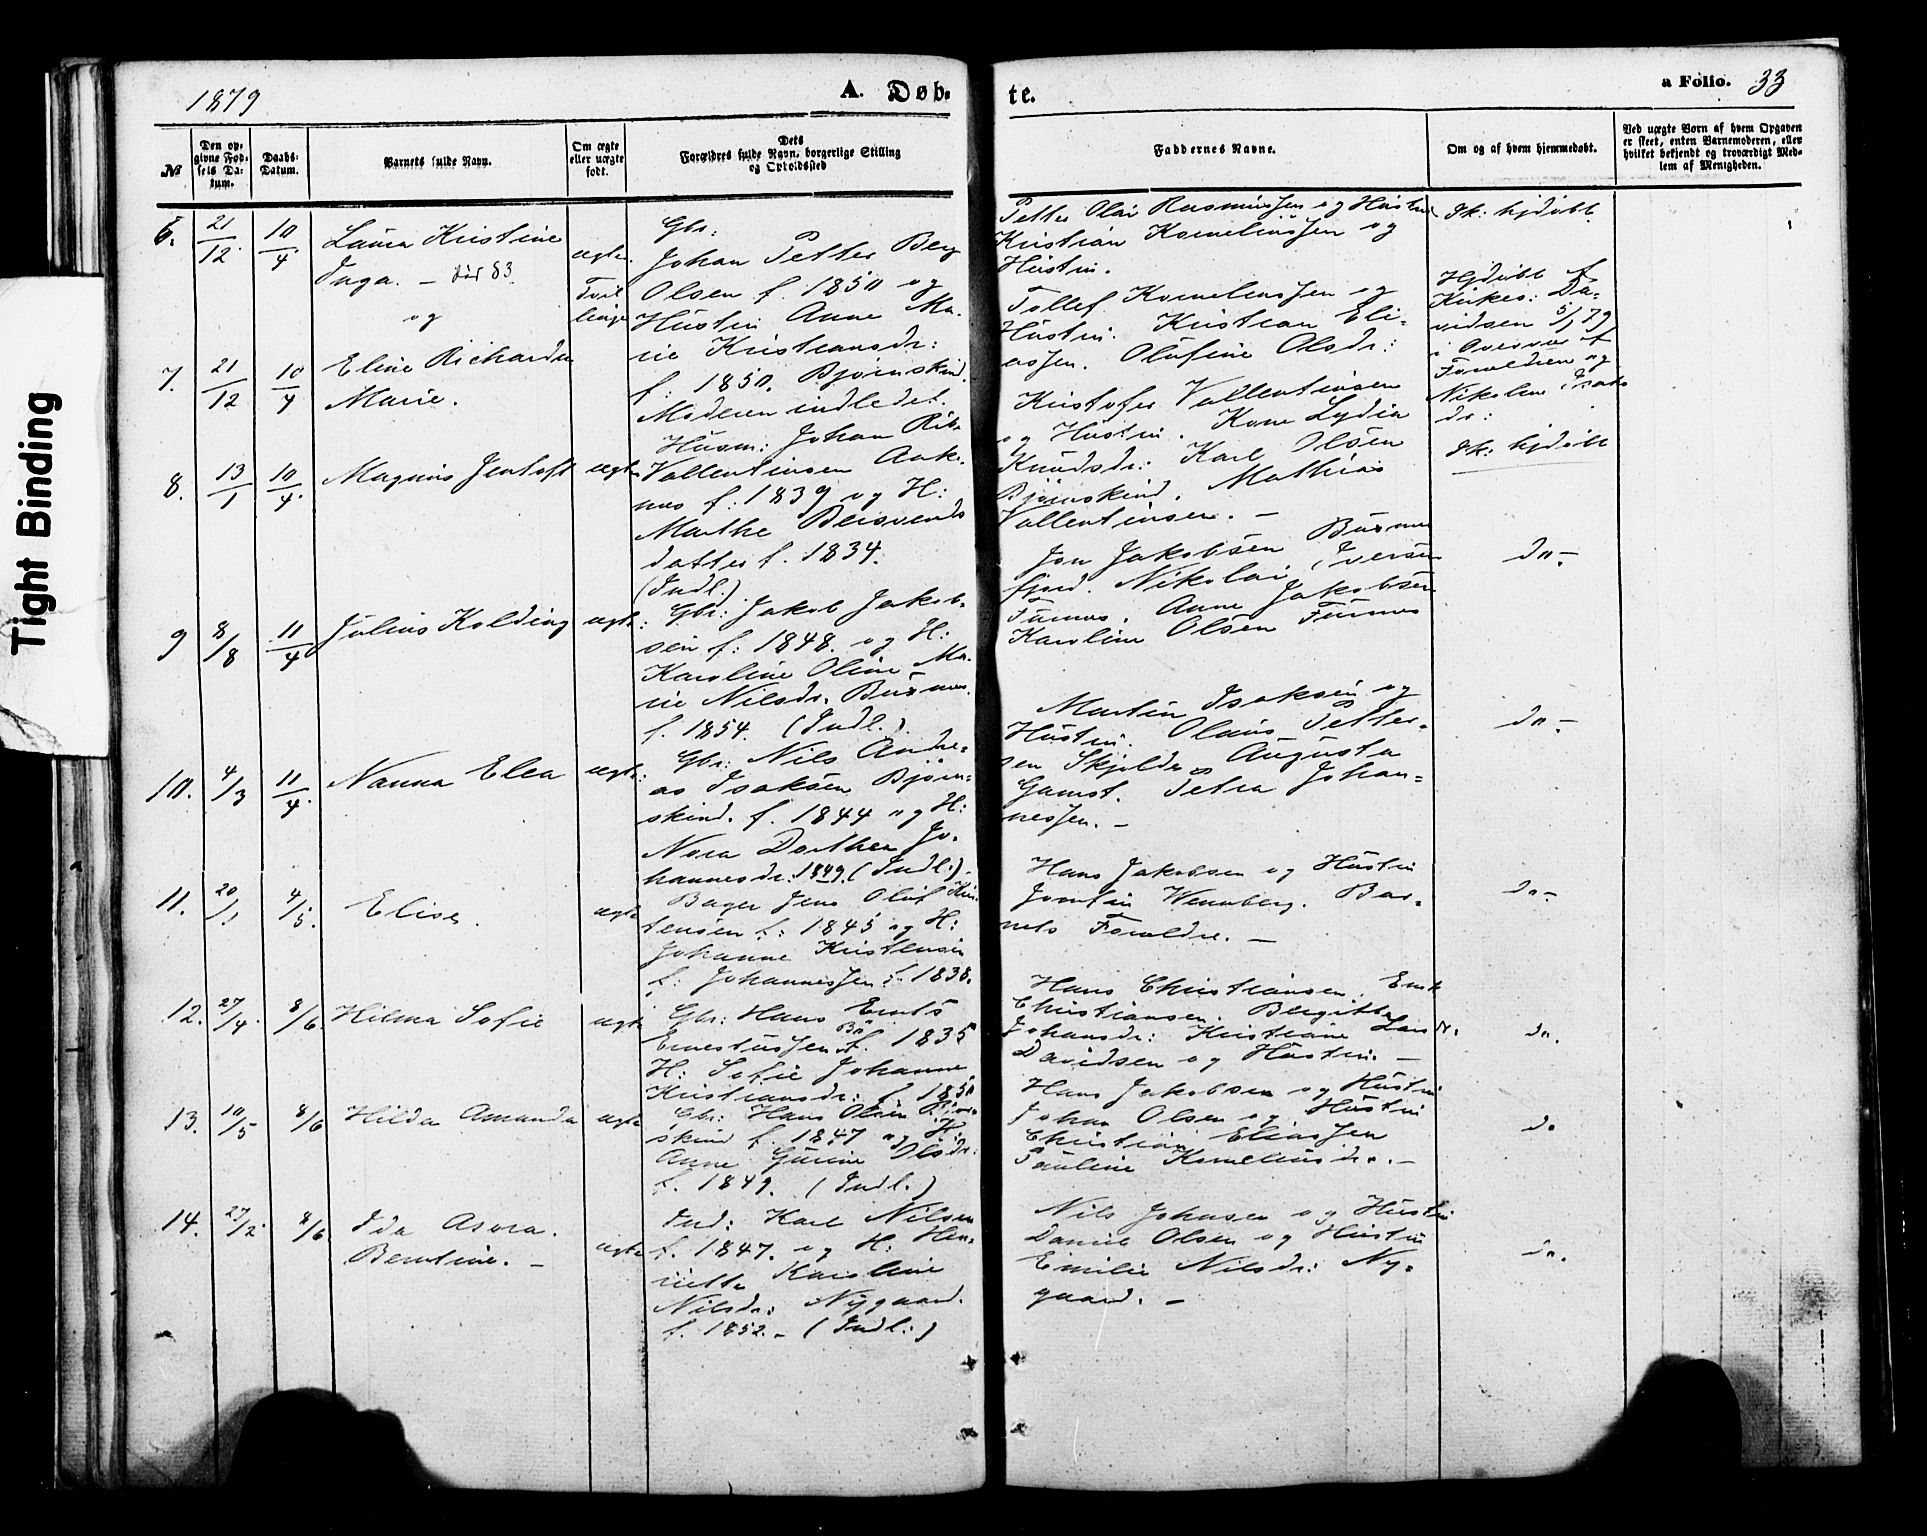 Tight Binding
1879
A. Døb-
te.
a Folio. 33
№
Den op-
givne Fød-
sels Da-
tum.
Daabs-
Datum.
Barnets fulde Navn.
Om ægte
eller uægte
født.
Dets
Forældres fulde Navn, borgerlige Stilling
og Opholdssted
Faddernes Navne.
Om og af hvem hjemmedøbt.
Ved uægte Børn af hvem Opgaven
er skeet, enten Barnemoderen, eller
hvilket bekjendt og troværdigt Med-
lem af Menigheden.
6. 21/12 10/4
Laura Kristine
Daga. — død 83.
og
ægte
Tvil
linge
Gbr:
Johan Petter Berg
Olsen f. 1850 og
Hustru Anne Ma-
rie Kristiansdr:
f. 1850. Bjørnskind.
Moderen indledet.
Petter Olai Rasmussen og Hustru
Kristian Kornelinssen og
Hustru.
Sk: hjdøbt.
7. 21/12 10/4
Eline Richarda
Marie.
Tollef Kornelinssen og
Hustru. Kristian Eli-
assen. Olufine Olsdr:
Hjdøbt af
Kirkes: Da-
vidsen 5/1 79
i Overvær af
Forældren og
Nikoline Isaks
dr:
8. 13/1 10/4.
Magnus Jentoft
ægte
Husm: Johan Rib.
Vallentinsen Aak-
nes f: 1839 og H:
Marthe Beisvends
datter f. 1834.
(Indl.)
Kristofer Vallentinsen
og Hustru. Kone Lydia
Knudsdr: Karl Olsen
Bjørnskind. Mathias
Vallentinsen. —
Sk: hjdøbt
9 8/8 11/4
Julius Kolding
ægte:
Gbr: Jakob Jakob-
sen f: 1848. og H:
Karoline Oline Ma-
rie Nilsdr. Buxnes.
f. 1854. (Indl.).
Jon Jakobsen Buxnes
fjord. Nikolai Iversen
Furnes. Anne Jakobsen
Karoline Olsen Furnes
do —
10. 4/3 11/4.
Nanna Elea
ægte:
Gbr: Nils Andre-
as Isaksen Bjørn-
skind. f. 1844 og H:
Nora Dorthea Jo-
hannesdr. 1849. (Indl:).
Martin Isaksen og
Hustru. Olaus Petter-
sen Skjolde. Augusta
Gamst. Petra Johan-
nessen. —
do —
11. 20/1 4/5.
Elise.
ægte
Bager Jens Oluf Kris
tensen f: 1845 og H:
Johanne Kristensen
f: Johannessen f. 1838.
Hans Jakobsen og Hustru
Wennberg. Bar-
nets Forældre. —
do —
12. 27/4. 8/6.
Hilma Sofie
ægte
Gbr: Hans
Ernestussen f 1835
H: Sofie Johanne
Kristiansdr: f. 1850
Hans Christiansen.
Christiansen. Bergitte
Johansdr: Kristiane
Davidsen og Hustru. —
do.
13. 10/5 8/6
Hilda Amanda
ægte
Gbr: Hans Olsen Bjørn-
skind f. 1847 og H:
Anne Gurine Olsdr:
f. 1849. (Indl.)
Hans Jakobsen og Hustru
Johan Olsen og Hustru
Christian Eliassen
Pauline Korneliusdr. —
do
14. 27/2. 8/6
Ida Asora.
Berntine. —
ægte
Ind: Karl Nilsen
f. 1847. og H: Hen-
riette Karoline
Nilsdr: Nygaard.
f. 1852. — (Indl:)
Nils Johnsen og Hustru
Daniel Olsen og Hustru
Emilie Nilsdr: Ny-
gaard. —
do.